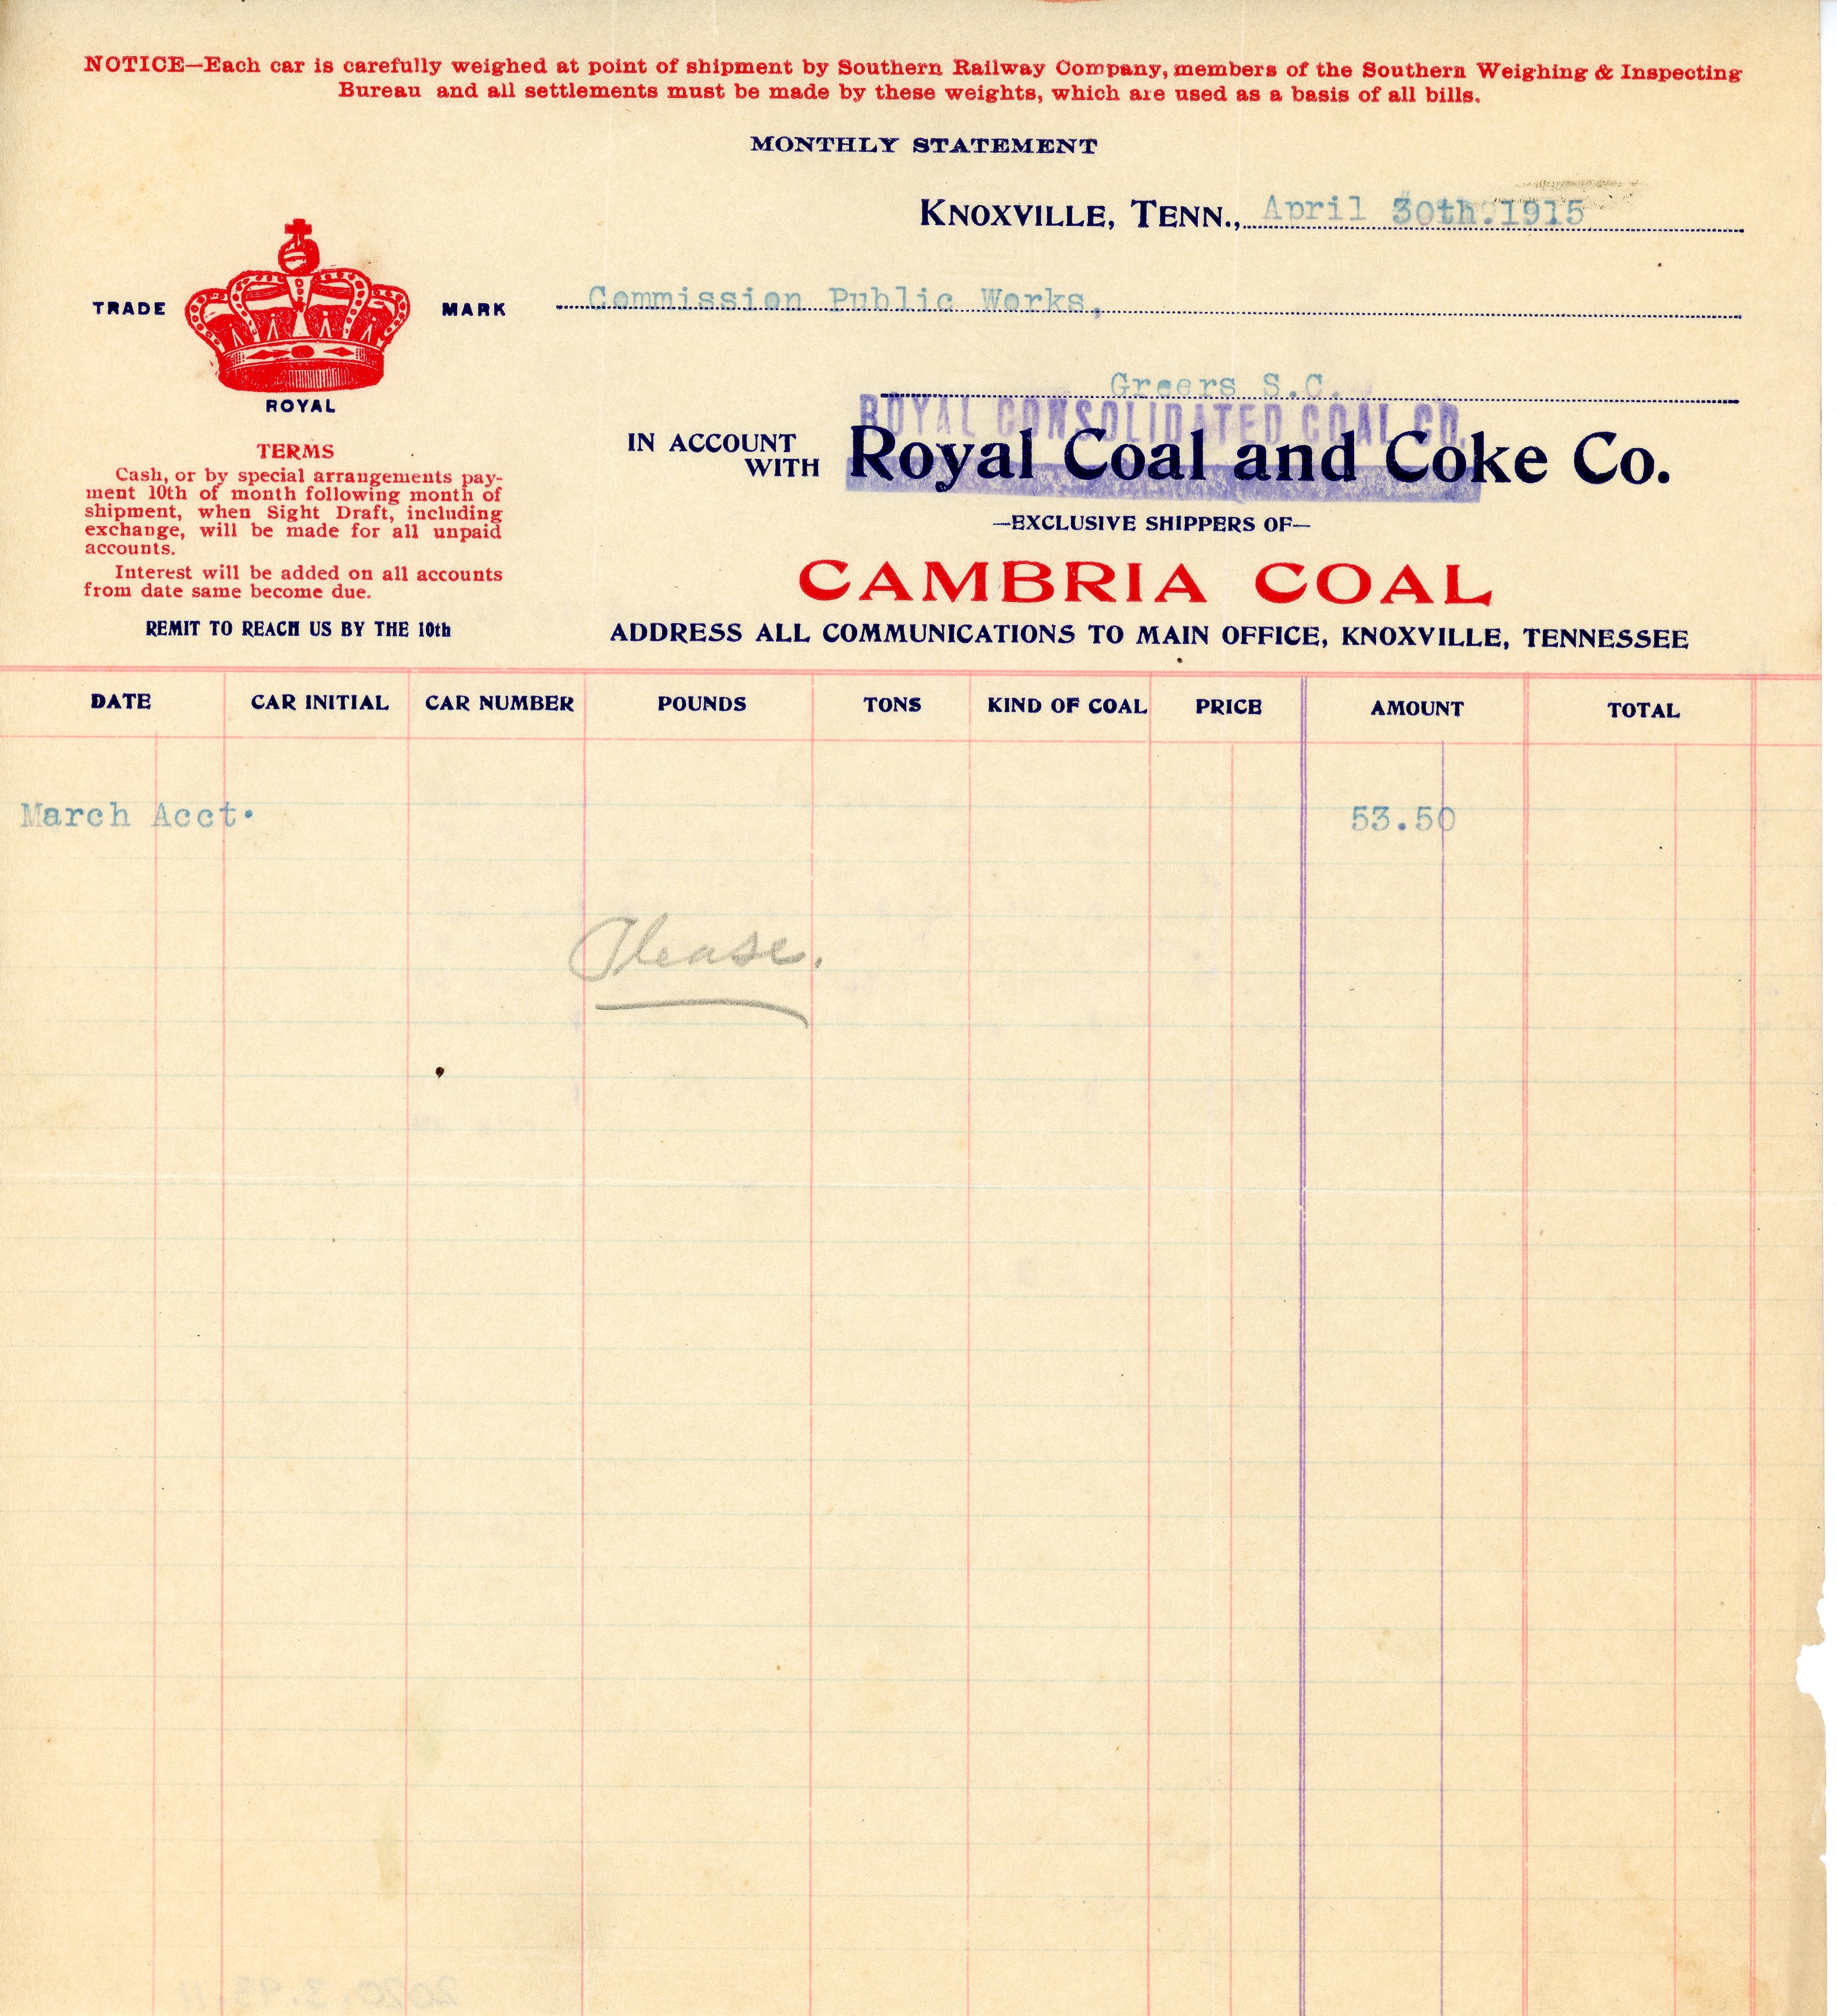 NOTICE—Each car is carefully weighed at point of shipment by Southern Railway Company, members of the Southern Weighing & Inspecting
Bureau and all settlements must be made by these weights, which are used as a basis of all bills.
MONTHLY STATEMENT
KNOXVILLE, TENN., April 30th.1915
TRADE MARK
ROYAL
Commission Public Works,
Greers S.C.
ROYAL CONSOLIDATED COAL CO.
IN ACCOUNT
WITH Royal Coal and Coke Co.
—EXCLUSIVE SHIPPERS OF—
CAMBRIA COAL
ADDRESS ALL COMMUNICATIONS TO MAIN OFFICE, KNOXVILLE, TENNESSEE
TERMS
Cash, or by special arrangements pay-
ment 10th of month following month of
shipment, when Sight Draft, including
exchange, will be made for all unpaid
accounts.
Interest will be added on all accounts
from date same become due.
REMIT TO REACH US BY THE 10th
DATE CAR INITIAL CAR NUMBER POUNDS TONS KIND OF COAL PRICE AMOUNT TOTAL
March Acct. 53.50
Please.
2020.3.93.11